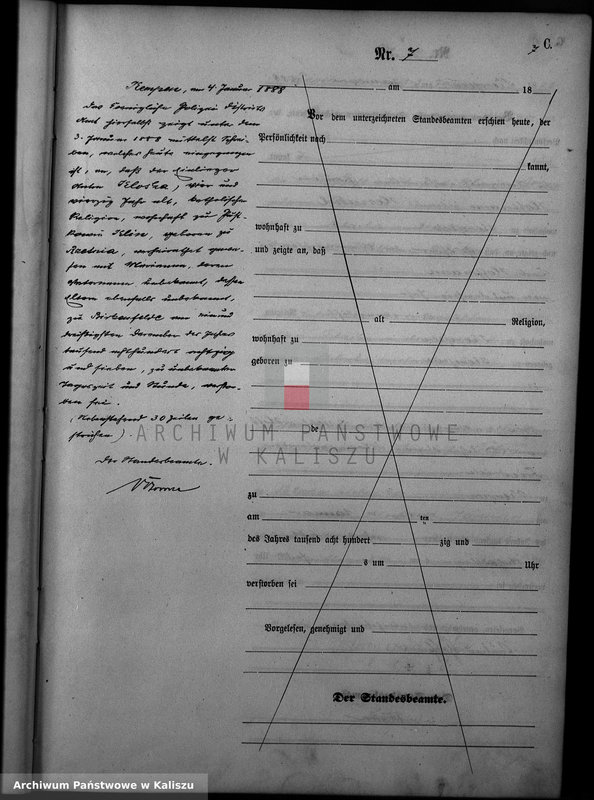 7 C.
Nr. 7
Kempen, am 4 Januar 1888
am 18
Das Königliche Polizei Distrikts
Amt hierselbst zeigt unter dem
3. Januar 1888 mittelst Schrei-
ben, welches heute eingegangen
ist, an, daß der Einlieger
Anton Kloska, vier und
vierzig Jahr alt, katholischer
Religion, wohnhaft zu
geboren zu
verheirathet gewe-
sen mit Marianna, deren
Vatername unbekannt, dessen
Eltern ebenfalls unbekannt,
zu Birkenfelde am neun und
dreißigsten Dezember des Jahres
tausend achthundert achtzig
und sieben, zu unbekannter
Tageszeit und Stunde, verstor-
ben sei.
(Nebenstehend 30 Zeilen ge-
strichen).
Der Standesbeamte.
Vor dem unterzeichneten Standesbeamten erschien heute, der
Persönlichkeit nach
kannt,
wohnhaft zu
und zeigte an, daß
alt Religion,
wohnhaft zu
geboren zu
de
zu
am ten
des Jahres tausend acht hundert zig und
s um Uhr
verstorben sei
Vorgelesen, genehmigt und
Der Standesbeamte.
ARCHIWUM PAŃSTWOWE
W KALISZU
Archiwum Państwowe w Kaliszu